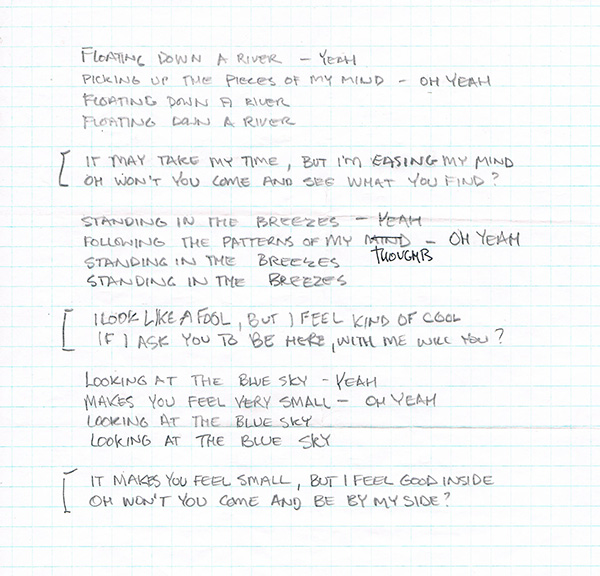 FLOATING DOWN A RIVER – YEAH
PICKING UP THE PIECES OF MY MIND – OH YEAH
FLOATING DOWN A RIVER
FLOATING DOWN A RIVER
IT MAY TAKE MY TIME, BUT I'M EASING MY MIND
OH WON'T YOU COME AND SEE WHAT YOU FIND?
STANDING IN THE BREEZES – YEAH
FOLLOWING THE PATTERNS OF MY MIND – OH YEAH
THOUGHTS
STANDING IN THE BREEZES
STANDING IN THE BREEZES
I LOOK LIKE A FOOL, BUT I FEEL KIND OF COOL
IF I ASK YOU TO BE HERE, WITH ME WILL YOU?
LOOKING AT THE BLUE SKY – YEAH
MAKES YOU FEEL VERY SMALL – OH YEAH
LOOKING AT THE BLUE SKY
LOOKING AT THE BLUE SKY
IT MAKES YOU FEEL SMALL, BUT I FEEL GOOD INSIDE
OH WON'T YOU COME AND BE BY MY SIDE?